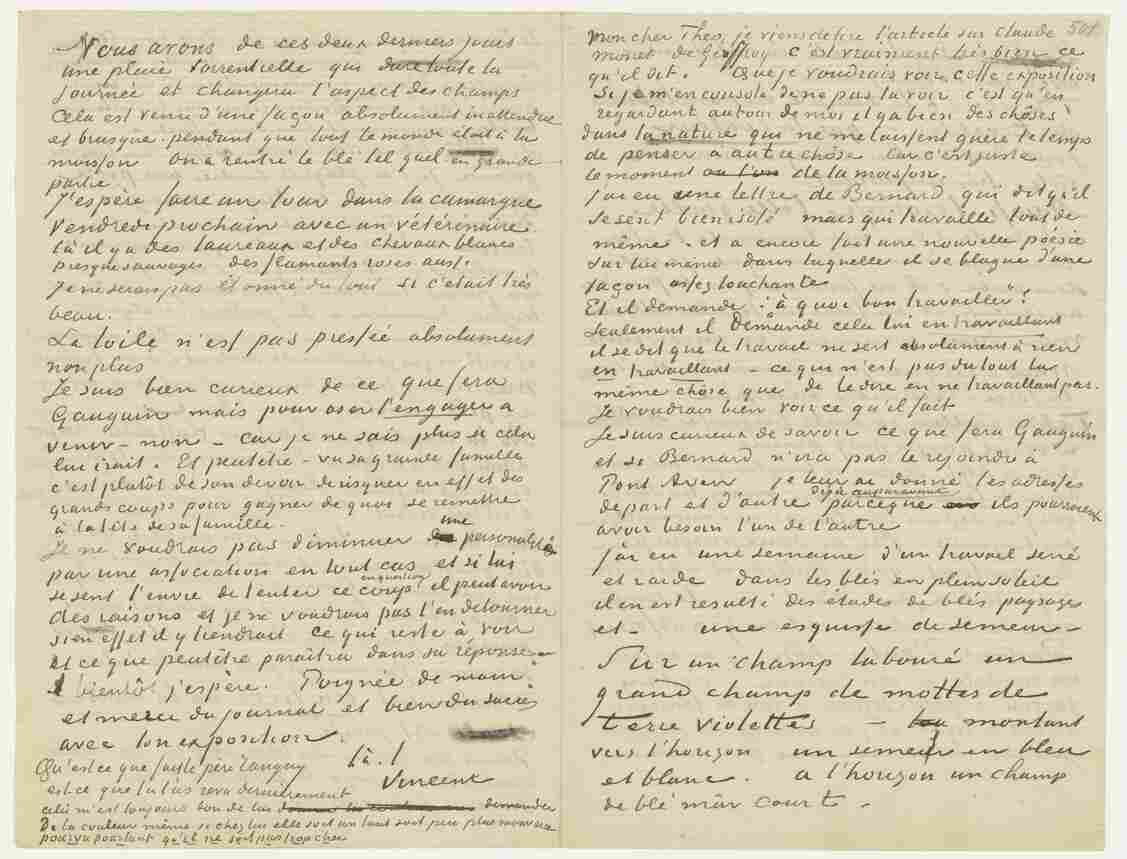 Nous avons de ces deux derniers jours
une pluie torrentielle qui dure toute la
journée et changera l'aspect des champs
Cela est venu d'une façon absolument inattendue
et brusque pendant que tout le monde était à la
moisson On a rentré le blé tel quel en grande
partie
J'espère faire un tour dans la camargue
Vendredi prochain avec un vétérinaire
là il y a des taureaux et des chevaux blancs
presque sauvages des flamants roses aussi.
Je ne serais pas étonné du tout si c'était très
beau.
La toile n'est pas pressée absolument
non plus
Je suis bien curieux de ce que fera
Gauguin mais pour oser l'engager à
venir – non – car je ne sais plus si cela
lui irait. Et peutêtre – vu sa grande famille
c'est plutôt de son devoir de risquer en effet des
grands coups pour gagner de quoi se remettre
à la tête de sa famille.
Je ne voudrais pas diminuer une personalité
par une association en tout cas et si lui
se sent l'envie de tenter ce coup en question il peut avoir
des raisons et je ne voudrais pas l'en detourner
si en effet il y tiendrait ce qui reste à voir
et ce que peutêtre paraîtra dans sa réponse –
à bientôt j'espère. Poignée de main
et merci du journal et bien du succès
avec ton exposition.
t. à. t.
Vincent
Qu'est ce que fait le père Tanguy
est ce que tu l'as revu dernièrement
cela m'est toujours bon de lui demander
De la couleur même si chez lui elle soit un tant soit peu plus mauvaise
pourvu pourtant qu'elle ne soit pas trop cher
501
Mon cher Theo, je viens de lire l'article sur Claude
Monet de Geffroy c'est vraiment très bien ce
qu'il dit. Que je voudrais voir cette exposition
Si je m'en console de ne pas la voir c'est qu'en
regardant autour de moi il y a bien des choses
dans la nature qui ne me laissent guère le temps
de penser à autre chose car c'est juste
le moment ou l'on de la moisson.
J'ai eu une lettre de Bernard qui dit qu'il
se sent bien isolé mais qui travaille tout de
même – et a encore fait une nouvelle poésie
sur lui même dans laquelle il se blague d'une
façon assez touchante
Et il demande: "à quoi bon travailler"?
Seulement il Demande cela lui en travaillant
il se dit que le travail ne sert absolument à rien
en travaillant – ce qui n'est pas du tout la
même chose que de le dire en ne travaillant pas.
Je voudrais bien voir ce qu'il fait
Je suis curieux de savoir ce que fera Gauguin
et si Bernard n'ira pas le rejoindre à
Pont Aven je leur ai donné les adresses
de part et d'autre déjà auparavant parceque ils pourraient
avoir besoin l'un de l'autre
J'ai eu une semaine d'un travail serré
et raide dans les blés en plein soleil
il en est resulté des études de blés paysages
et – une esquisse de semeur –
Sur un champ labouré un
grand champ de mottes de
terre violettes – montant
vers l'horizon un semeur en bleu
et blanc. a l'horizon un champ
de blé mûr court –